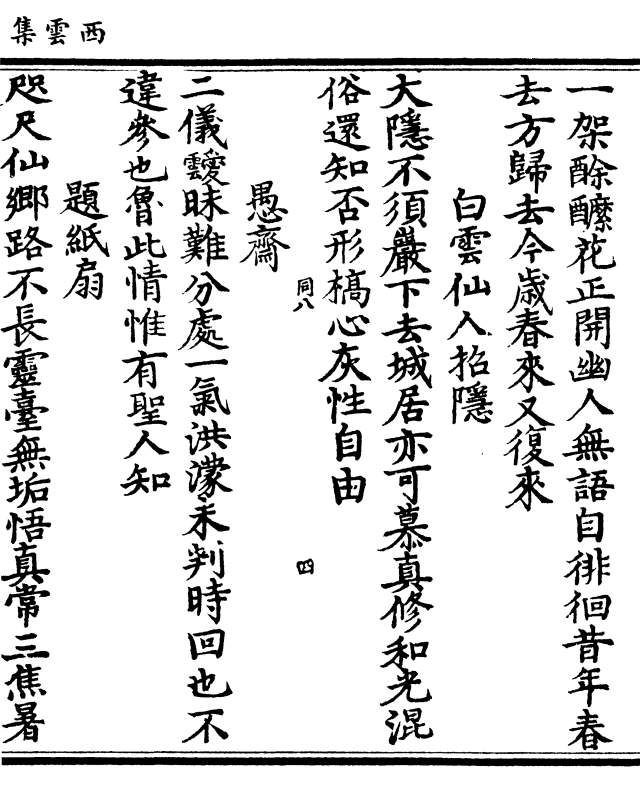 西雲集
一架酴醾花正開幽人無語自徘徊昔年春
去方歸去今歳春來又復來
白雲仙人招隱
大隱不須巖下去城居亦可慕真修和光混
俗還知否形槁心灰性自由
同八
四
愚齋
二儀靉昧難分處一氣洪濛未判時回也不
違參也魯此情惟有聖人知
題紙扇
咫尺仙鄉路不長靈臺無垢悟真常三焦暑